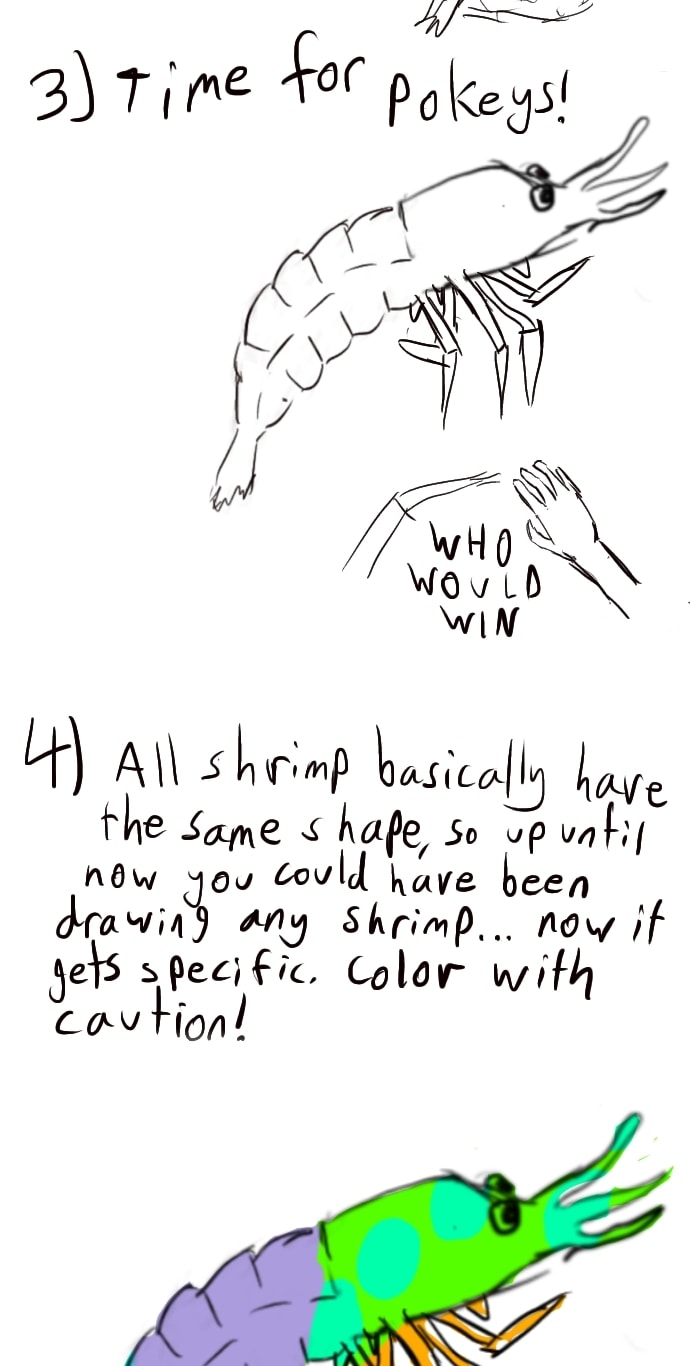 3) Time for Pokeys!
WHO
WOULD
WIN
4) All shrimp basically have
the same shape, so up until
now you could have been
drawing any shrimp... now it
gets specific. Color with
caution!